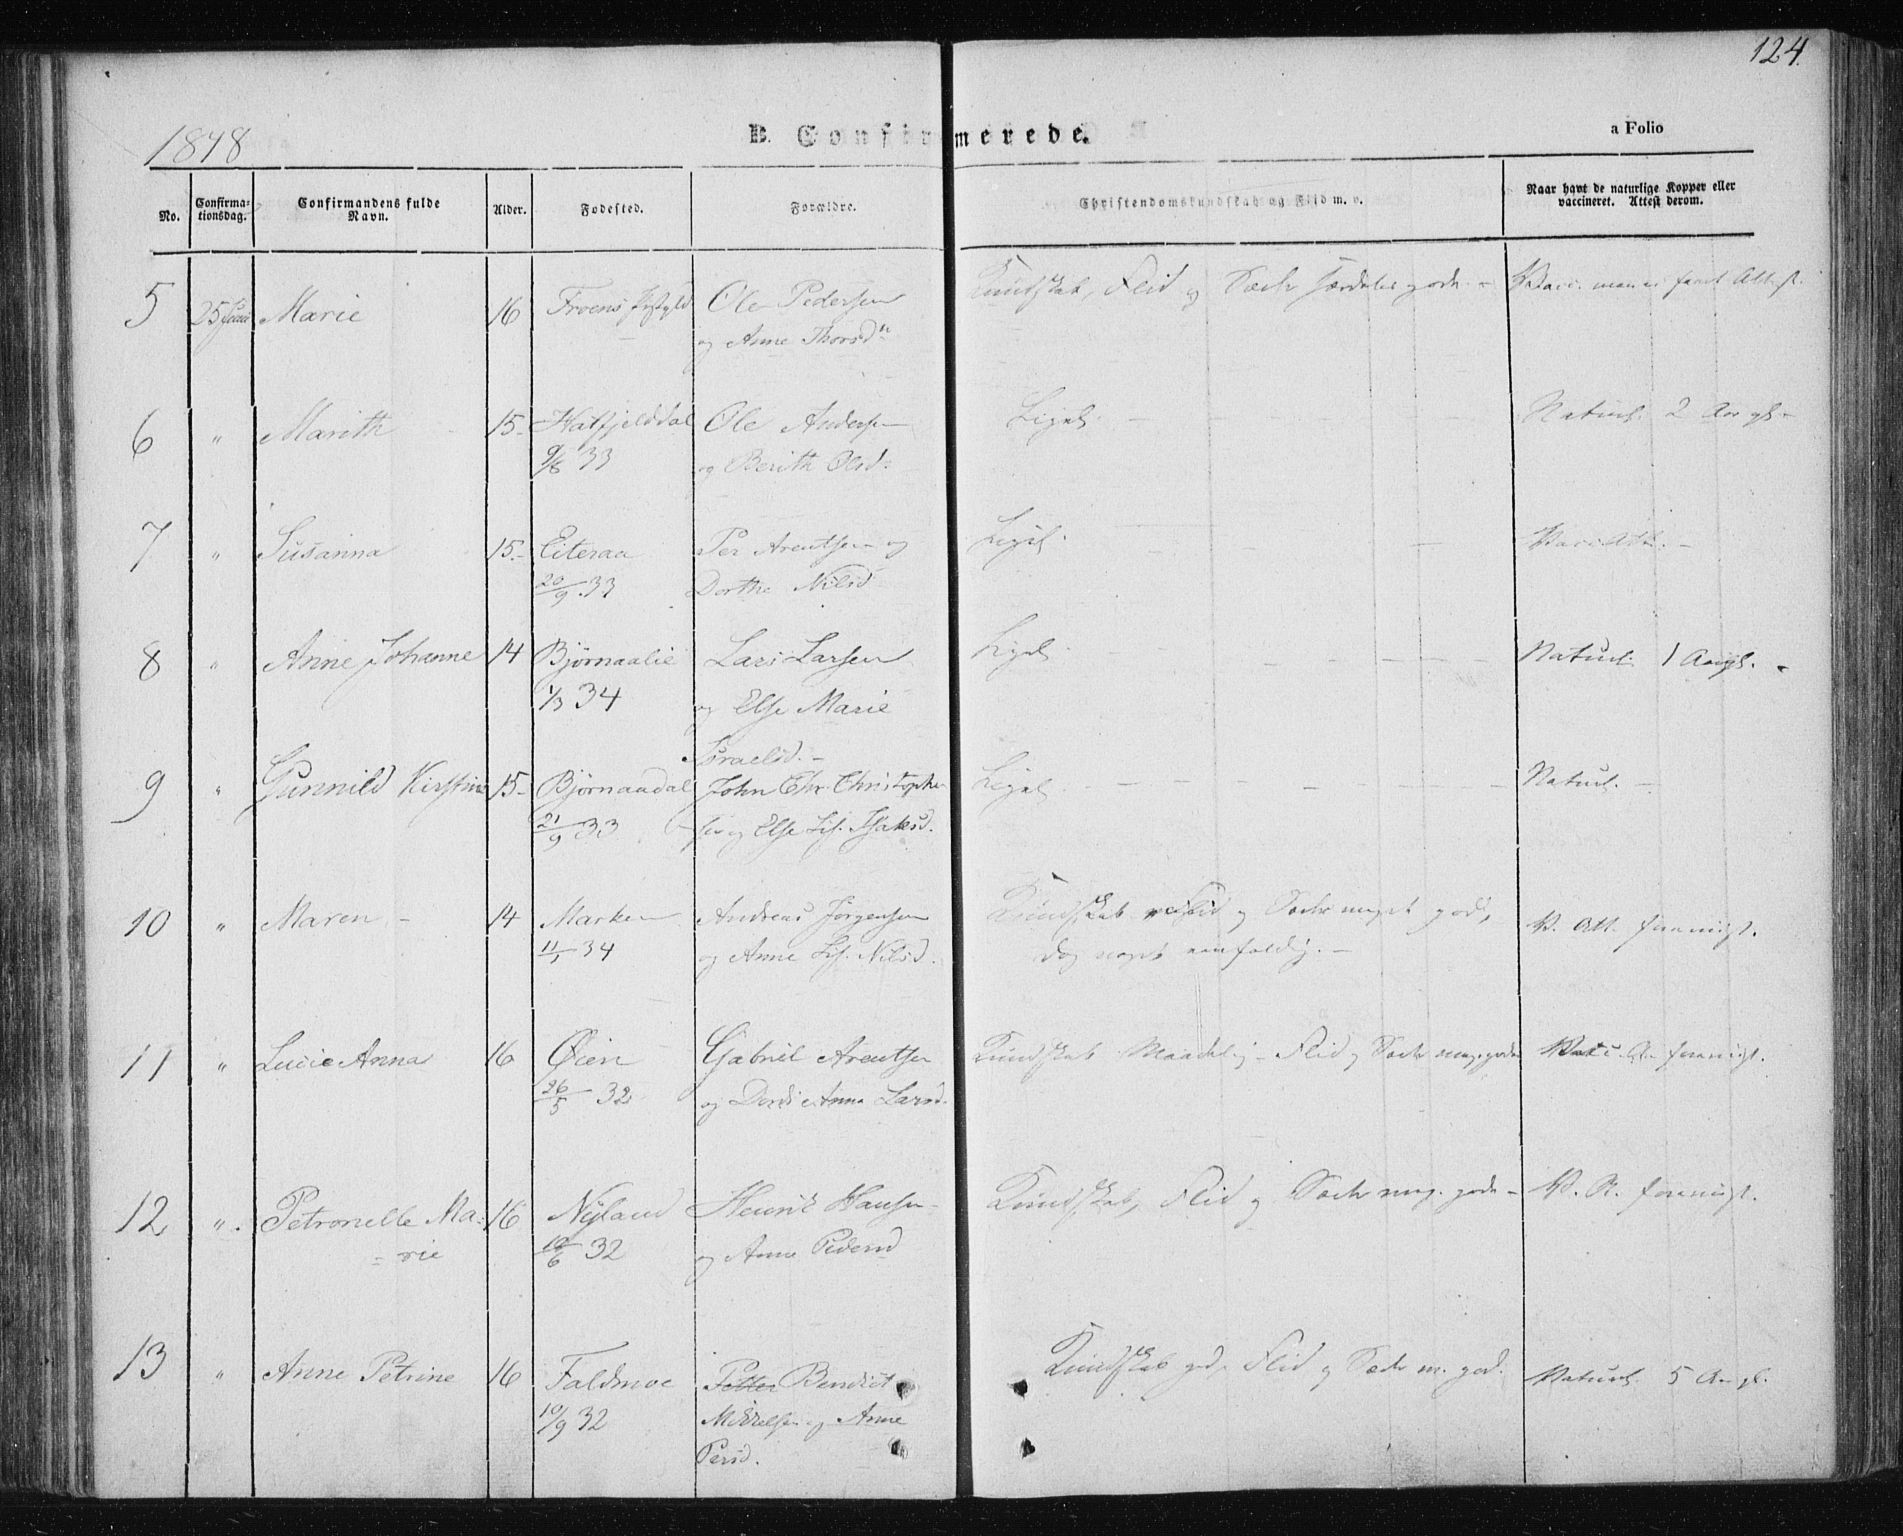 124.
1848
B. Confirmerede.
a Folio
No.
Confirma-
tionsdag.
Confirmandens fulde
Navn.
Alder.
Fødested.
Forældre.
Christendomskundskab og Flid m. v.
Naar havt de naturlige Kopper eller
vaccineret. Attest derom.
5 25 Juni Marie 16 Froens Ole Pedersen Kundskab, Flid og Sæder særdeles gode.
og Anne Thorsdn
6 " Marith 15 Hatfjelddal Ole Andersen Ligel. Naturl. 2 Aar gl.
9/8 33 og Berith Olsd.
7 " Susanna 15 Eiteraa Per Arentsen og Ligel.
20/9 33 Dorthe Nilsd
8 " Anne Johanne 14 Bjørnaalie Lars Larsen Ligel. Naturl. 1 Aargl.
1/3 34 og Else Marie
Israelsd.
9 " Gunnild Kirstine 15 Bjørnaadal John Chr. Christophe Ligel. Naturl.
21/9 33 sen og Else Lis. Isaksd.
10 " Maren 14 Marken Andreas Jørgensen Kundskab Flid og Sæder meget gode, V. Att. fremvist.
11/1 34 og Anne Lis. Nilsd. dog noget eenfoldig.
11 " Lucie Anna 16 Øien Gabriel Arentsen Kundskab Maadelig Flid og Sæder meg. gode Vacc. A. fremvist.
26/5 32 og Dordie Anna Larsd.
12 " Petronelle Ma- 16 Nyland Henrik Hansen Kundskab, Flid og Sæder meg. gode V. A. fremvist.
= rie /6 32 og Anne Pedersd
13 " Anne Petrine 16 Faldmoe Petter Bendict Kundskab god, Flid og Sæder m. god. Naturl. 5 Aar gl.
10/9 32 Mikkelsen og Anne
Persd.